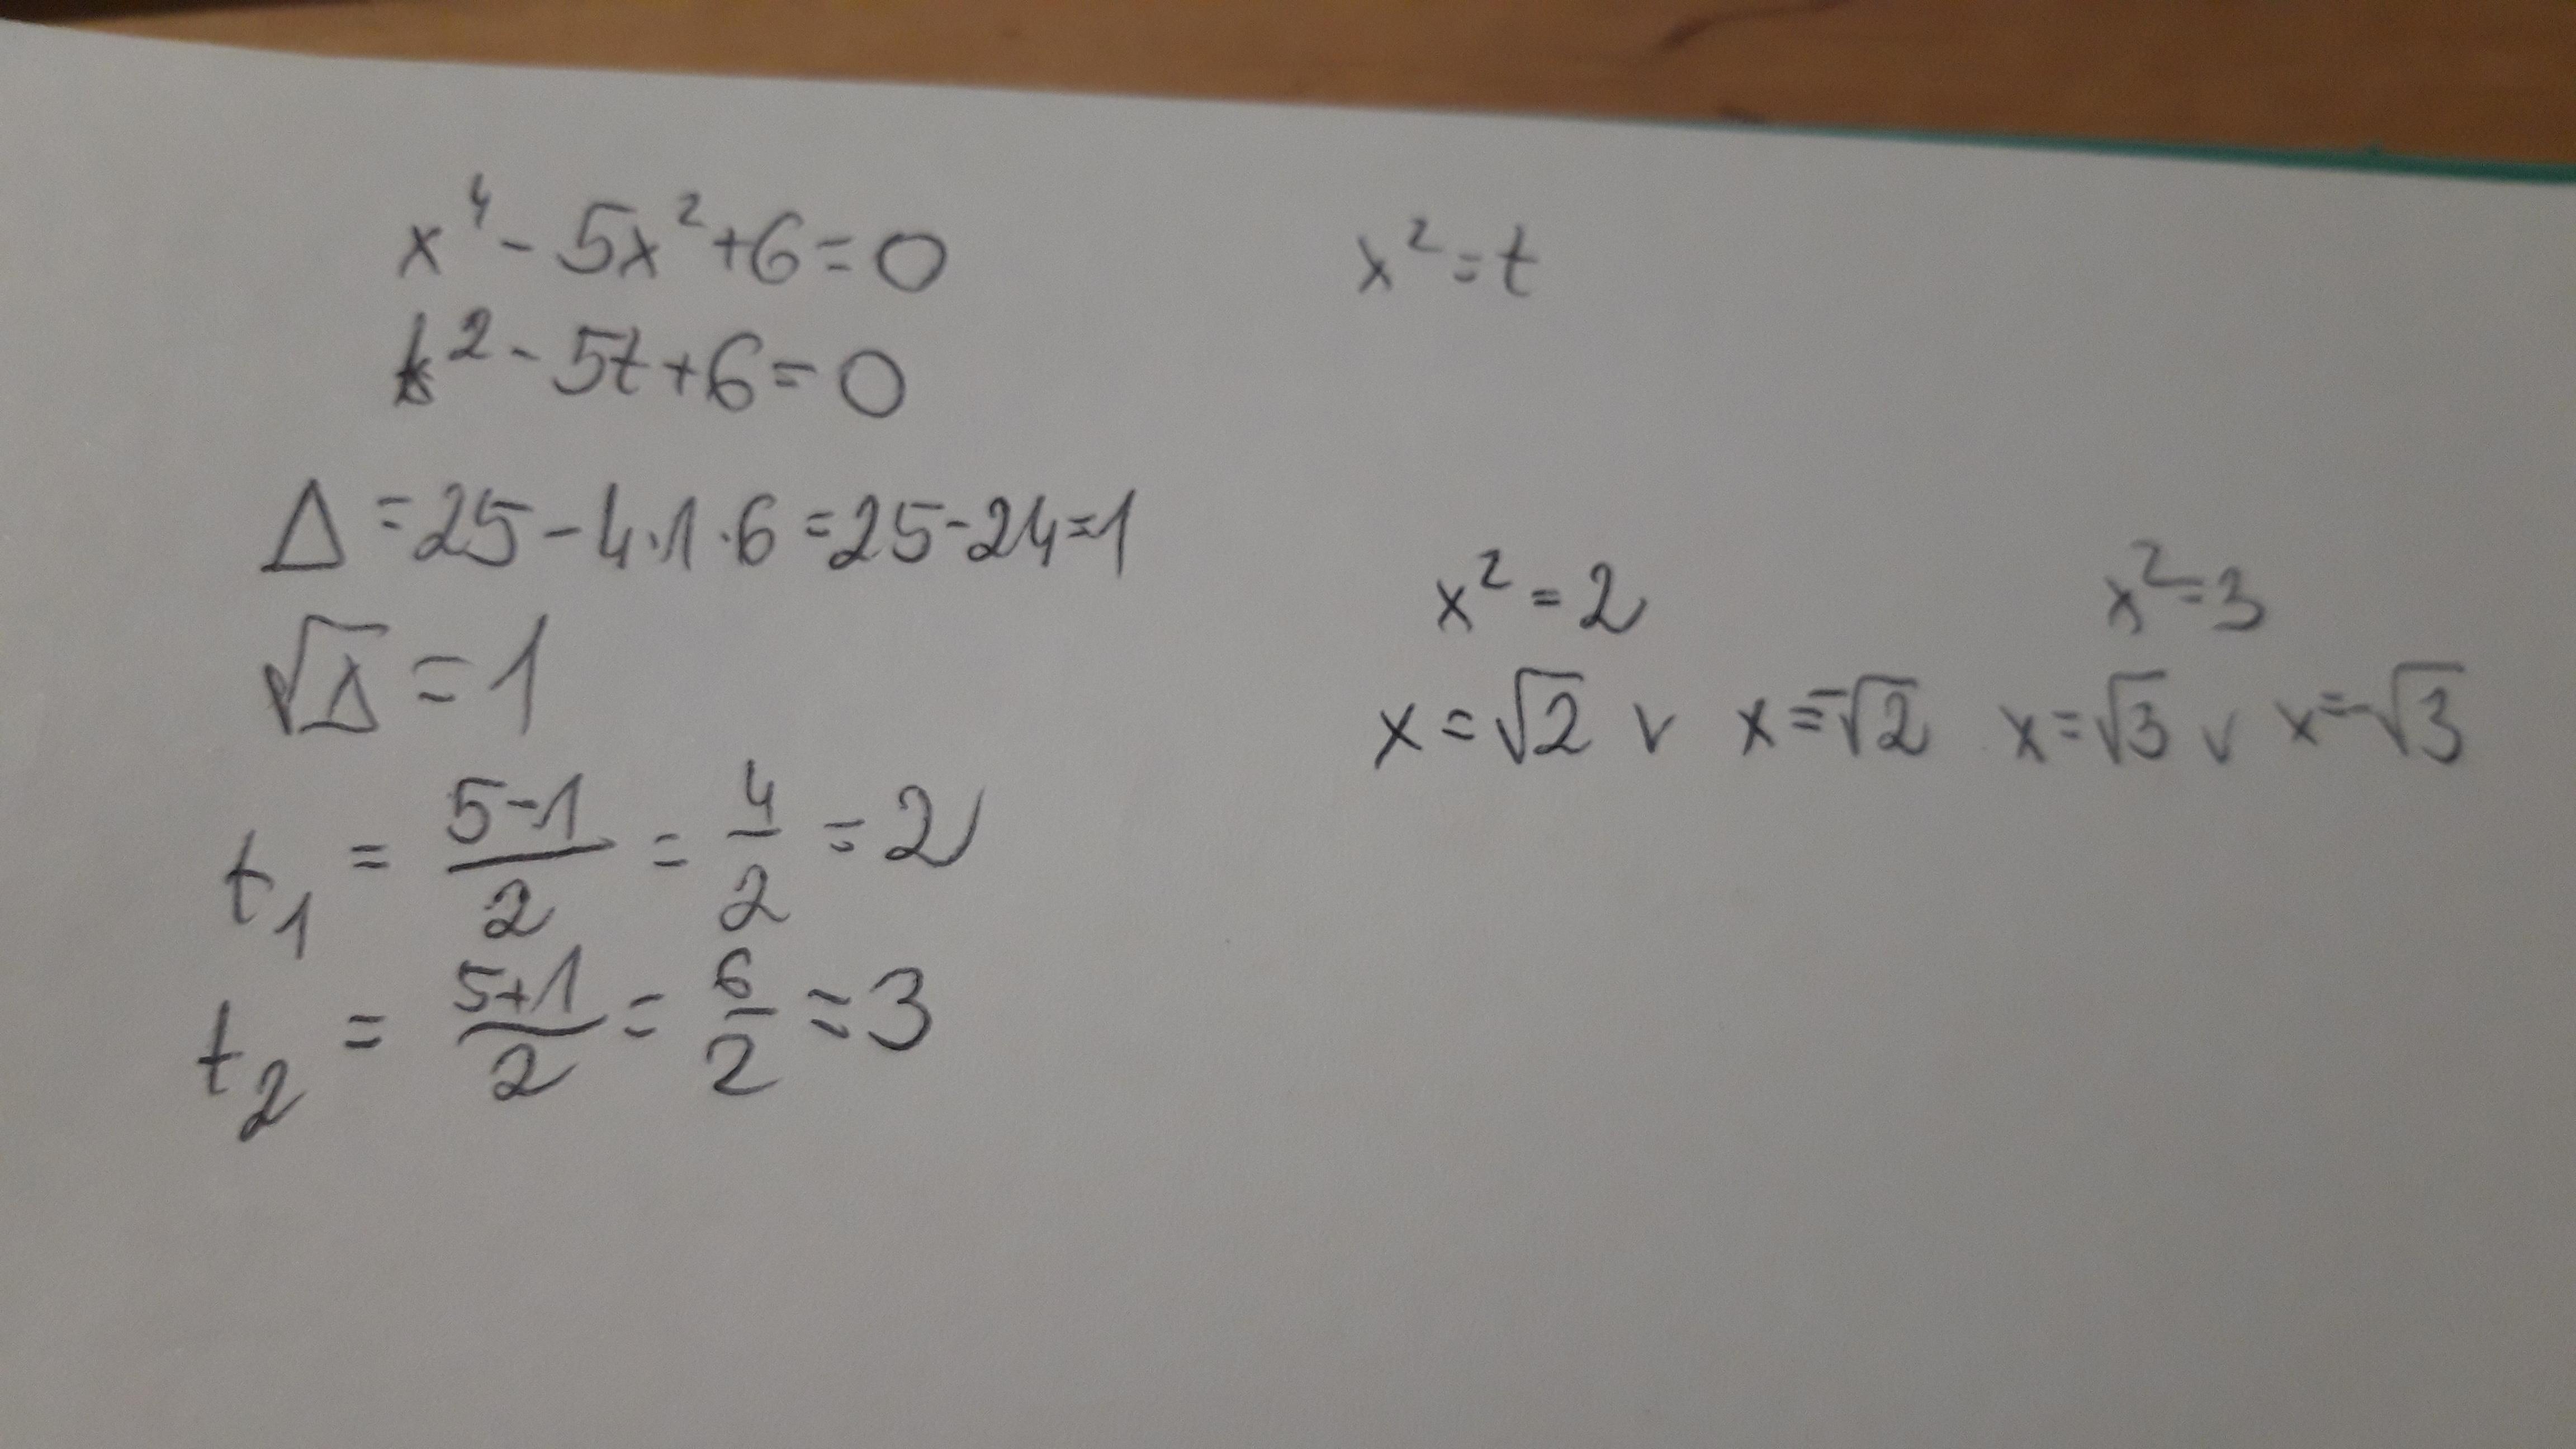 x⁴ - 5x² + 6 = 0
x² = t
t² - 5t + 6 = 0
Δ = 25 - 4·1·6 = 25 - 24 = 1
√Δ = 1
t₁ = (5-1)/2 = 4/2 = 2
t₂ = (5+1)/2 = 6/2 = 3
x² = 2
x = √2 v x = -√2
x² = 3
x = √3 v x = -√3